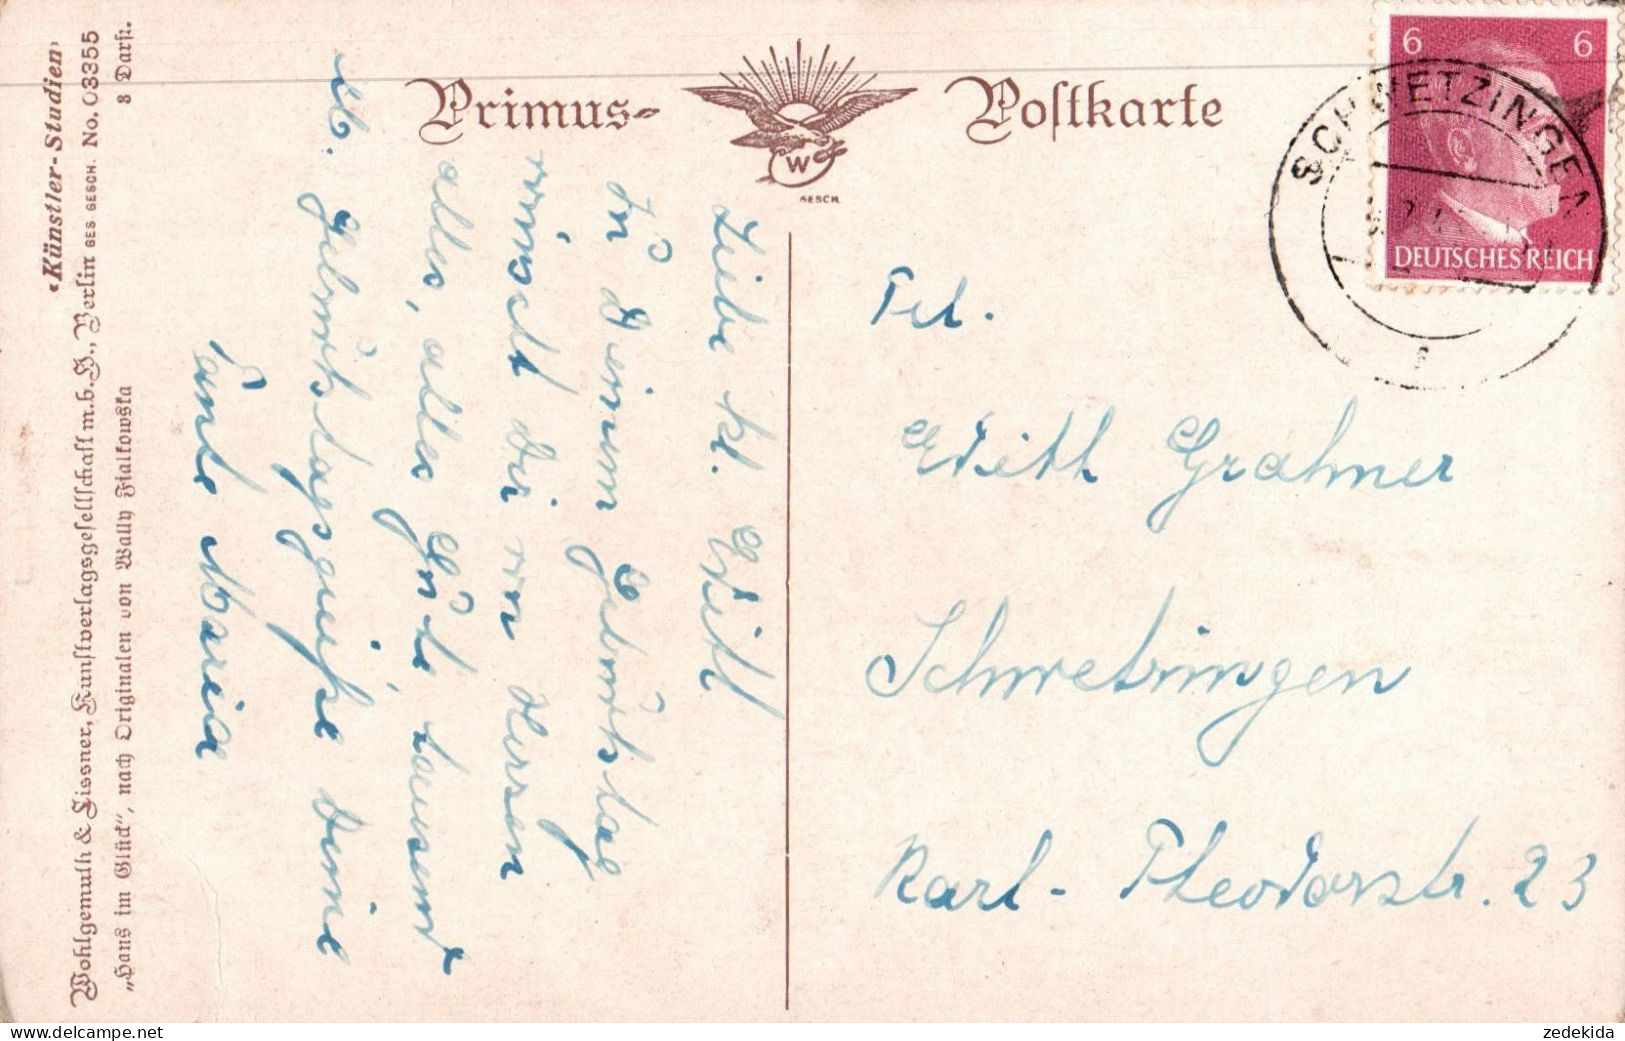 Primus-
Postkarte
W
GESCH.
6 6
DEUTSCHES REICH
SCHWETZINGEN
Frl.
Edith Grahner
Schwetzingen
Karl-Theodorstr. 23
Liebe kl. Edith
Zu Deinem Geburtstag
wünscht Dir von Herzen
alles, alles Gute tausend
Geburtstagsgrüße Deine
Tante Maria
«Künstler-Studien»
Wohlgemuth & Lissner, Kunstverlagsgesellschaft m.b.H., Berlin GES GESCH. No. 03355
„Hans im Glück", nach Originalen von Wally Fialkowska
8 Darst.
delcampe.net
zedekida